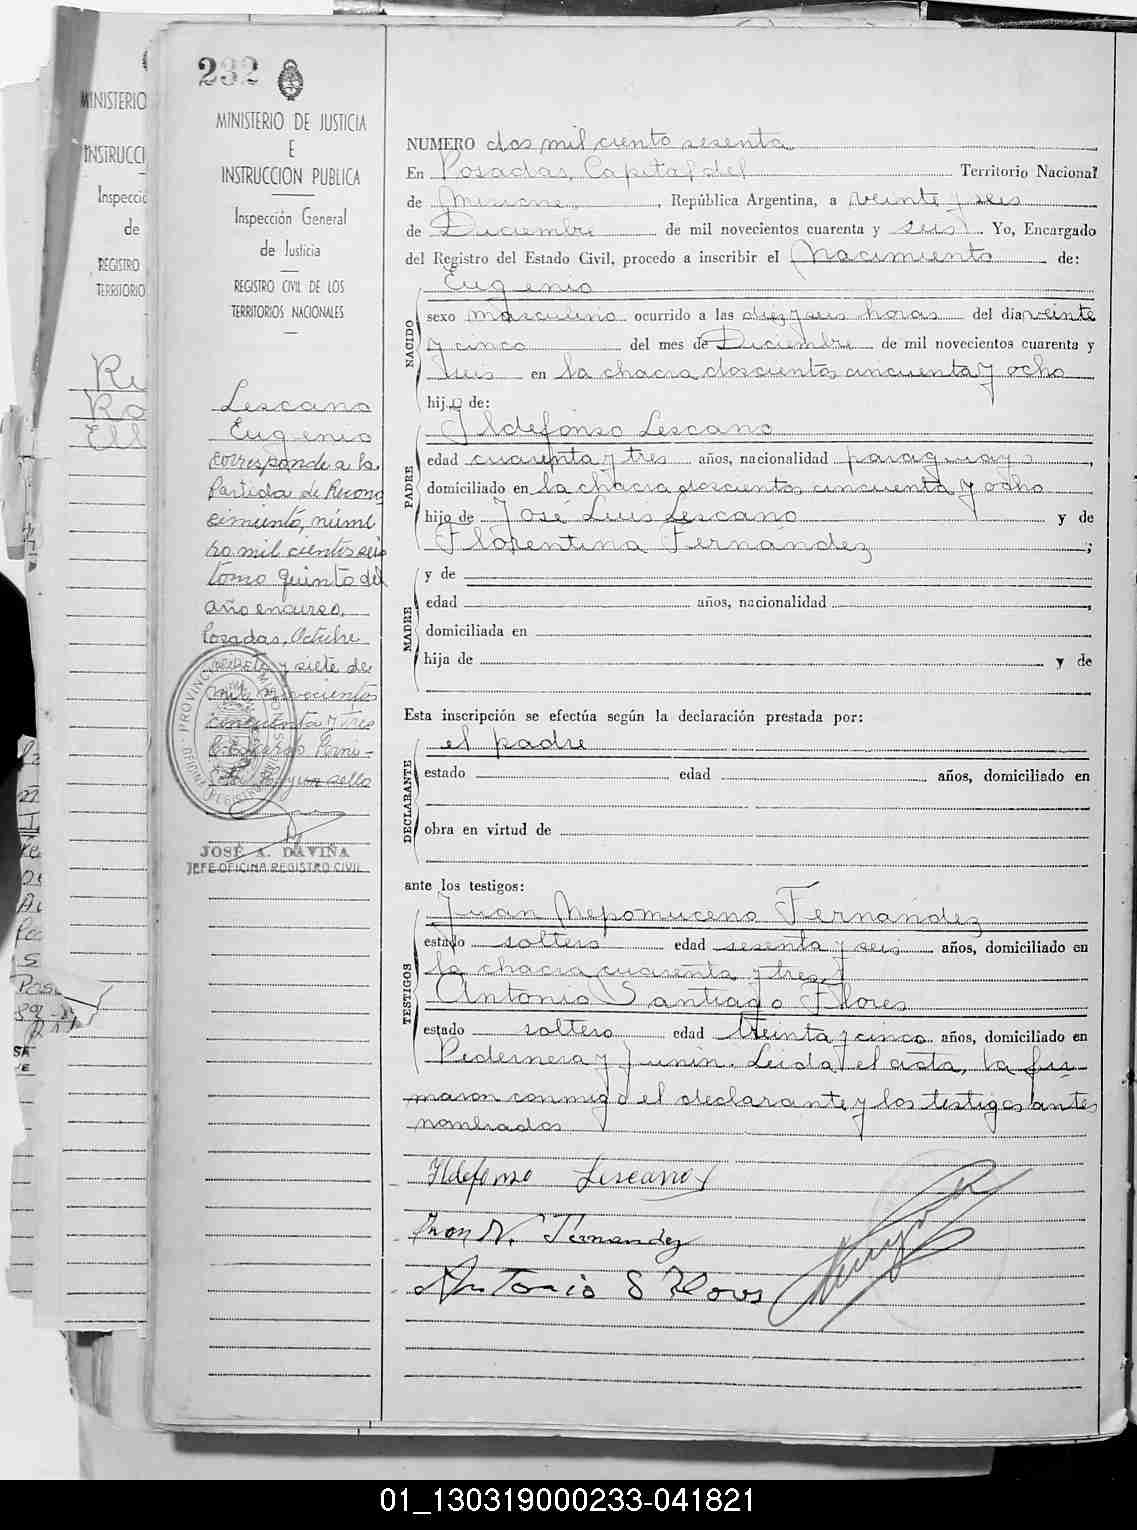 232
MINISTERIO DE JUSTICIA
E
INSTRUCCION PUBLICA
Inspección General
de Justicia
REGISTRO CIVIL DE LOS
TERRITORIOS NACIONALES
Lescano
Eugenio
corresponde a la
Partida de Recono
cimiento, núme
ro mil ciento seis
tomo quinto del
año en curso.
Posadas, Octubre
veinte y siete de
mil novecientos
cincuenta y tres
sello
JOSÉ A. DAVIÑA
JEFE OFICINA REGISTRO CIVIL
NUMERO dos mil ciento sesenta
En Posadas, Capital del Territorio Nacional
de Misiones, República Argentina, a veinte y seis
de Diciembre de mil novecientos cuarenta y seis. Yo, Encargado
del Registro del Estado Civil, procedo a inscribir el Nacimiento de:
NACIDO
Eugenio
sexo masculino ocurrido a las diez y seis horas del día veinte
y cinco del mes de Diciembre de mil novecientos cuarenta y
seis en la chacra doscientos cincuenta y ocho
hijo de:
PADRE
Ildefonso Lescano
edad cuarenta y tres años, nacionalidad paraguayo,
domiciliado en la chacra doscientos cincuenta y ocho
hijo de José Luis Lescano y de
Florentina Fernandez;
MADRE
y de
edad años, nacionalidad,
domiciliada en
hija de y de
Esta inscripción se efectúa según la declaración prestada por:
DECLARANTE
el padre
estado edad años, domiciliado en
obra en virtud de
ante los testigos:
TESTIGOS
Juan Nepomuceno Fernandez
estado soltero edad sesenta y seis años, domiciliado en
la chacra cuarenta y tres y
Antonio Santiago Flores
estado soltero edad treinta y cinco años, domiciliado en
Pedernera y Junin. Leida el acta, la fir-
maron conmigo el declarante y los testigos antes
nombrados
Ildefonso Lescano
Juan N. Fernandez
Antonio S Flores
01_130319000233-041821